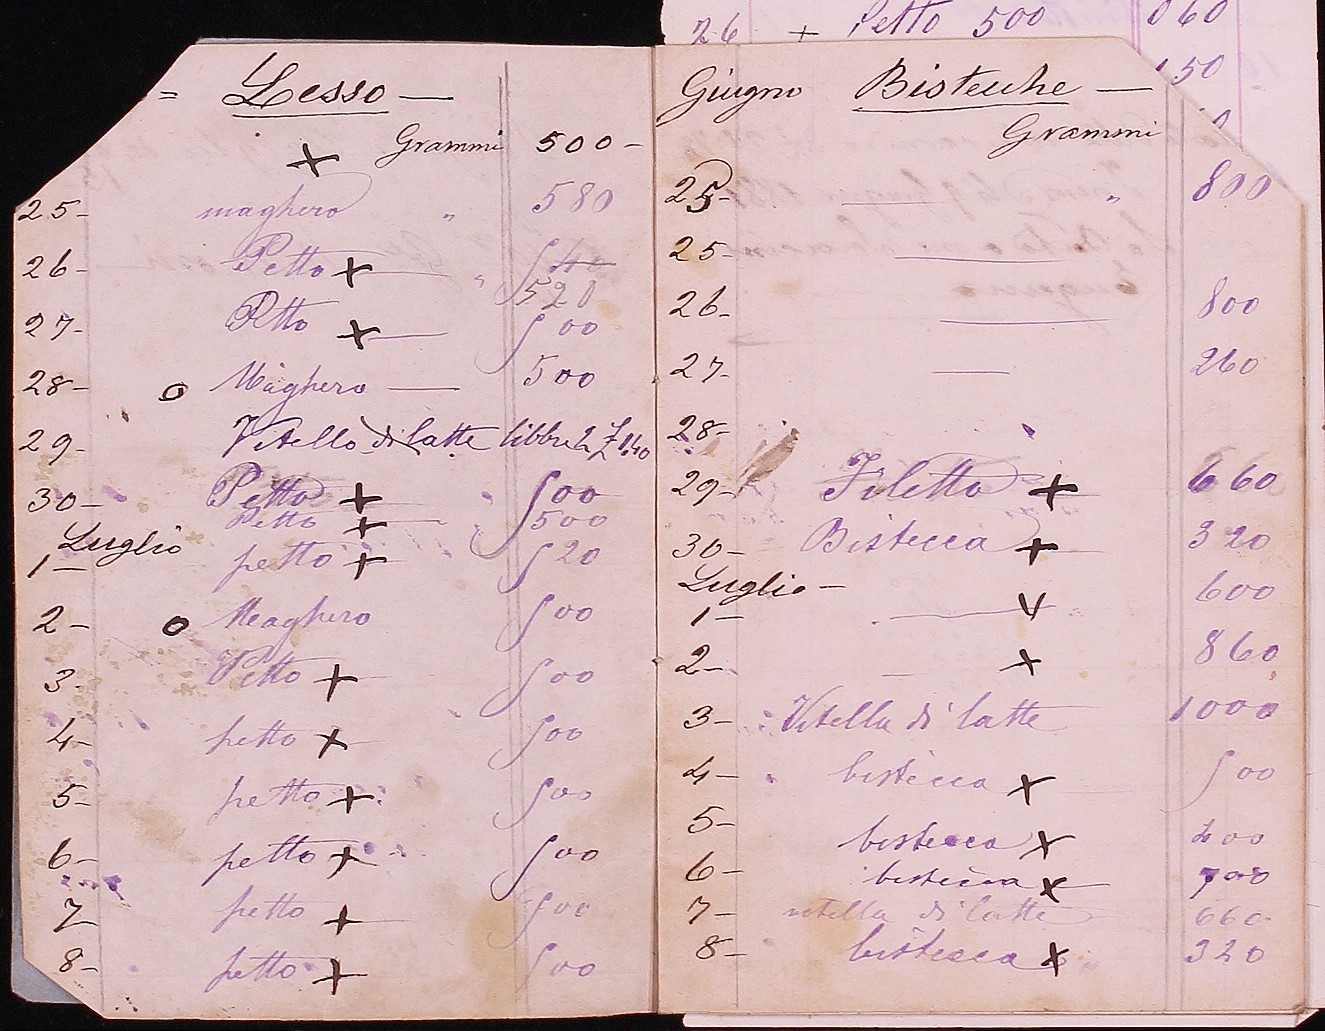 26 + Petto 500 060
150
= Lesso —
+ Grammi 500 -
25- maghero " 580
26- Petto + " 540
520
27- Petto + 500
28- o Maghero — 500
29- Vitello di latte libbre 2 £ 1.40
30- Petto + 500
Petto + 500
Luglio
1- petto + 520
2- o Maghero 500
3- Petto + 500
4- petto + 500
5- petto + 500
6- petto + 500
7- petto + 500
8- petto + 500
Giugno Bistecche —
Grammi
25- — " 800
25- —
26- — 800
27- — 260
28-
29- Filetto + 660
30- Bistecca + 320
Luglio - 600
1- — +
2- — + 860
3- Vitella di latte 1000
4- bistecca + 500
5- bistecca + 400
6- bistecca + 700
7- vitella di latte 660
8- bistecca + 320